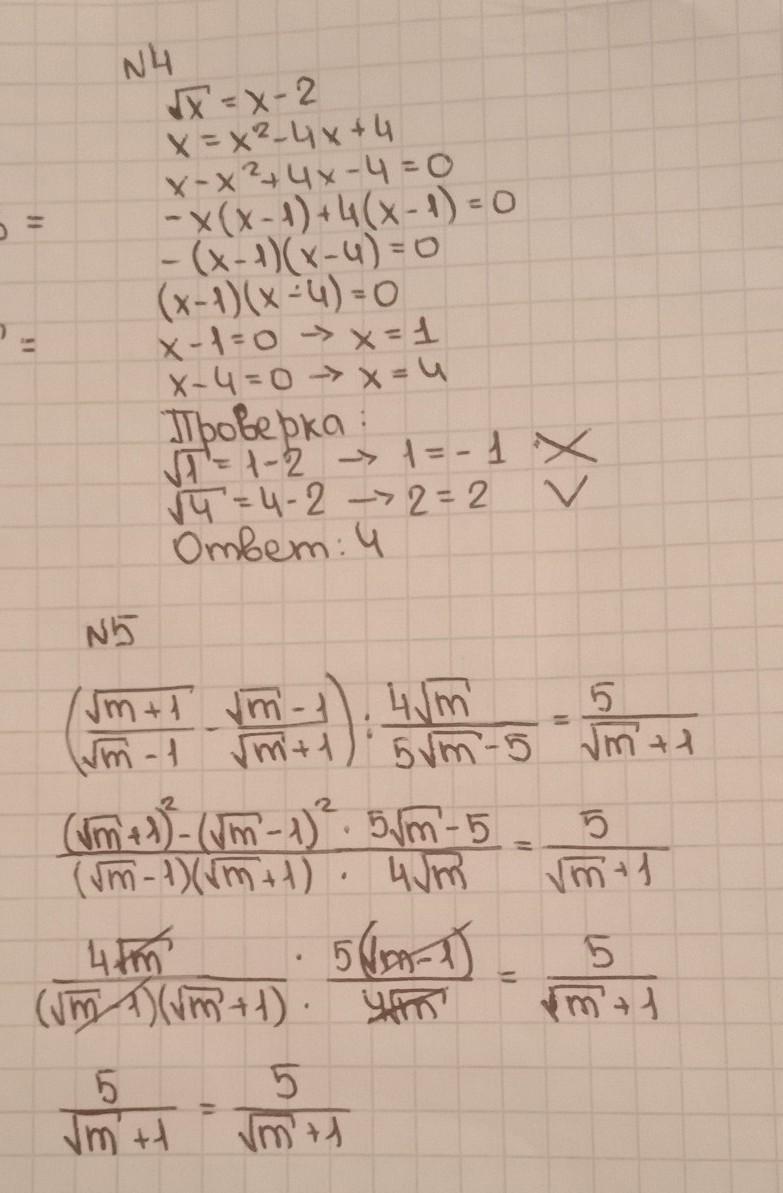 №4
√x = x - 2
x = x² - 4x + 4
x - x² + 4x - 4 = 0
=
- x(x - 1) + 4(x - 1) = 0
- (x - 1)(x - 4) = 0
(x - 1)(x - 4) = 0
=
x - 1 = 0 → x = 1
x - 4 = 0 → x = 4
Проверка:
√1 = 1 - 2 → 1 = - 1 ✗
√4 = 4 - 2 → 2 = 2 ✓
Ответ: 4
№5
(√(m + 1)/(√m - 1) - (√m - 1)/(√m + 1)) : 4√m/(5√m - 5) = 5/(√m + 1)
((√m + 1)² - (√m - 1)² · 5√m - 5)/((√m - 1)(√m + 1) · 4√m) = 5/(√m + 1)
4√m/((√m - 1)(√m + 1)) · 5(√m - 1)/(4√m) = 5/(√m + 1)
5/(√m + 1) = 5/(√m + 1)